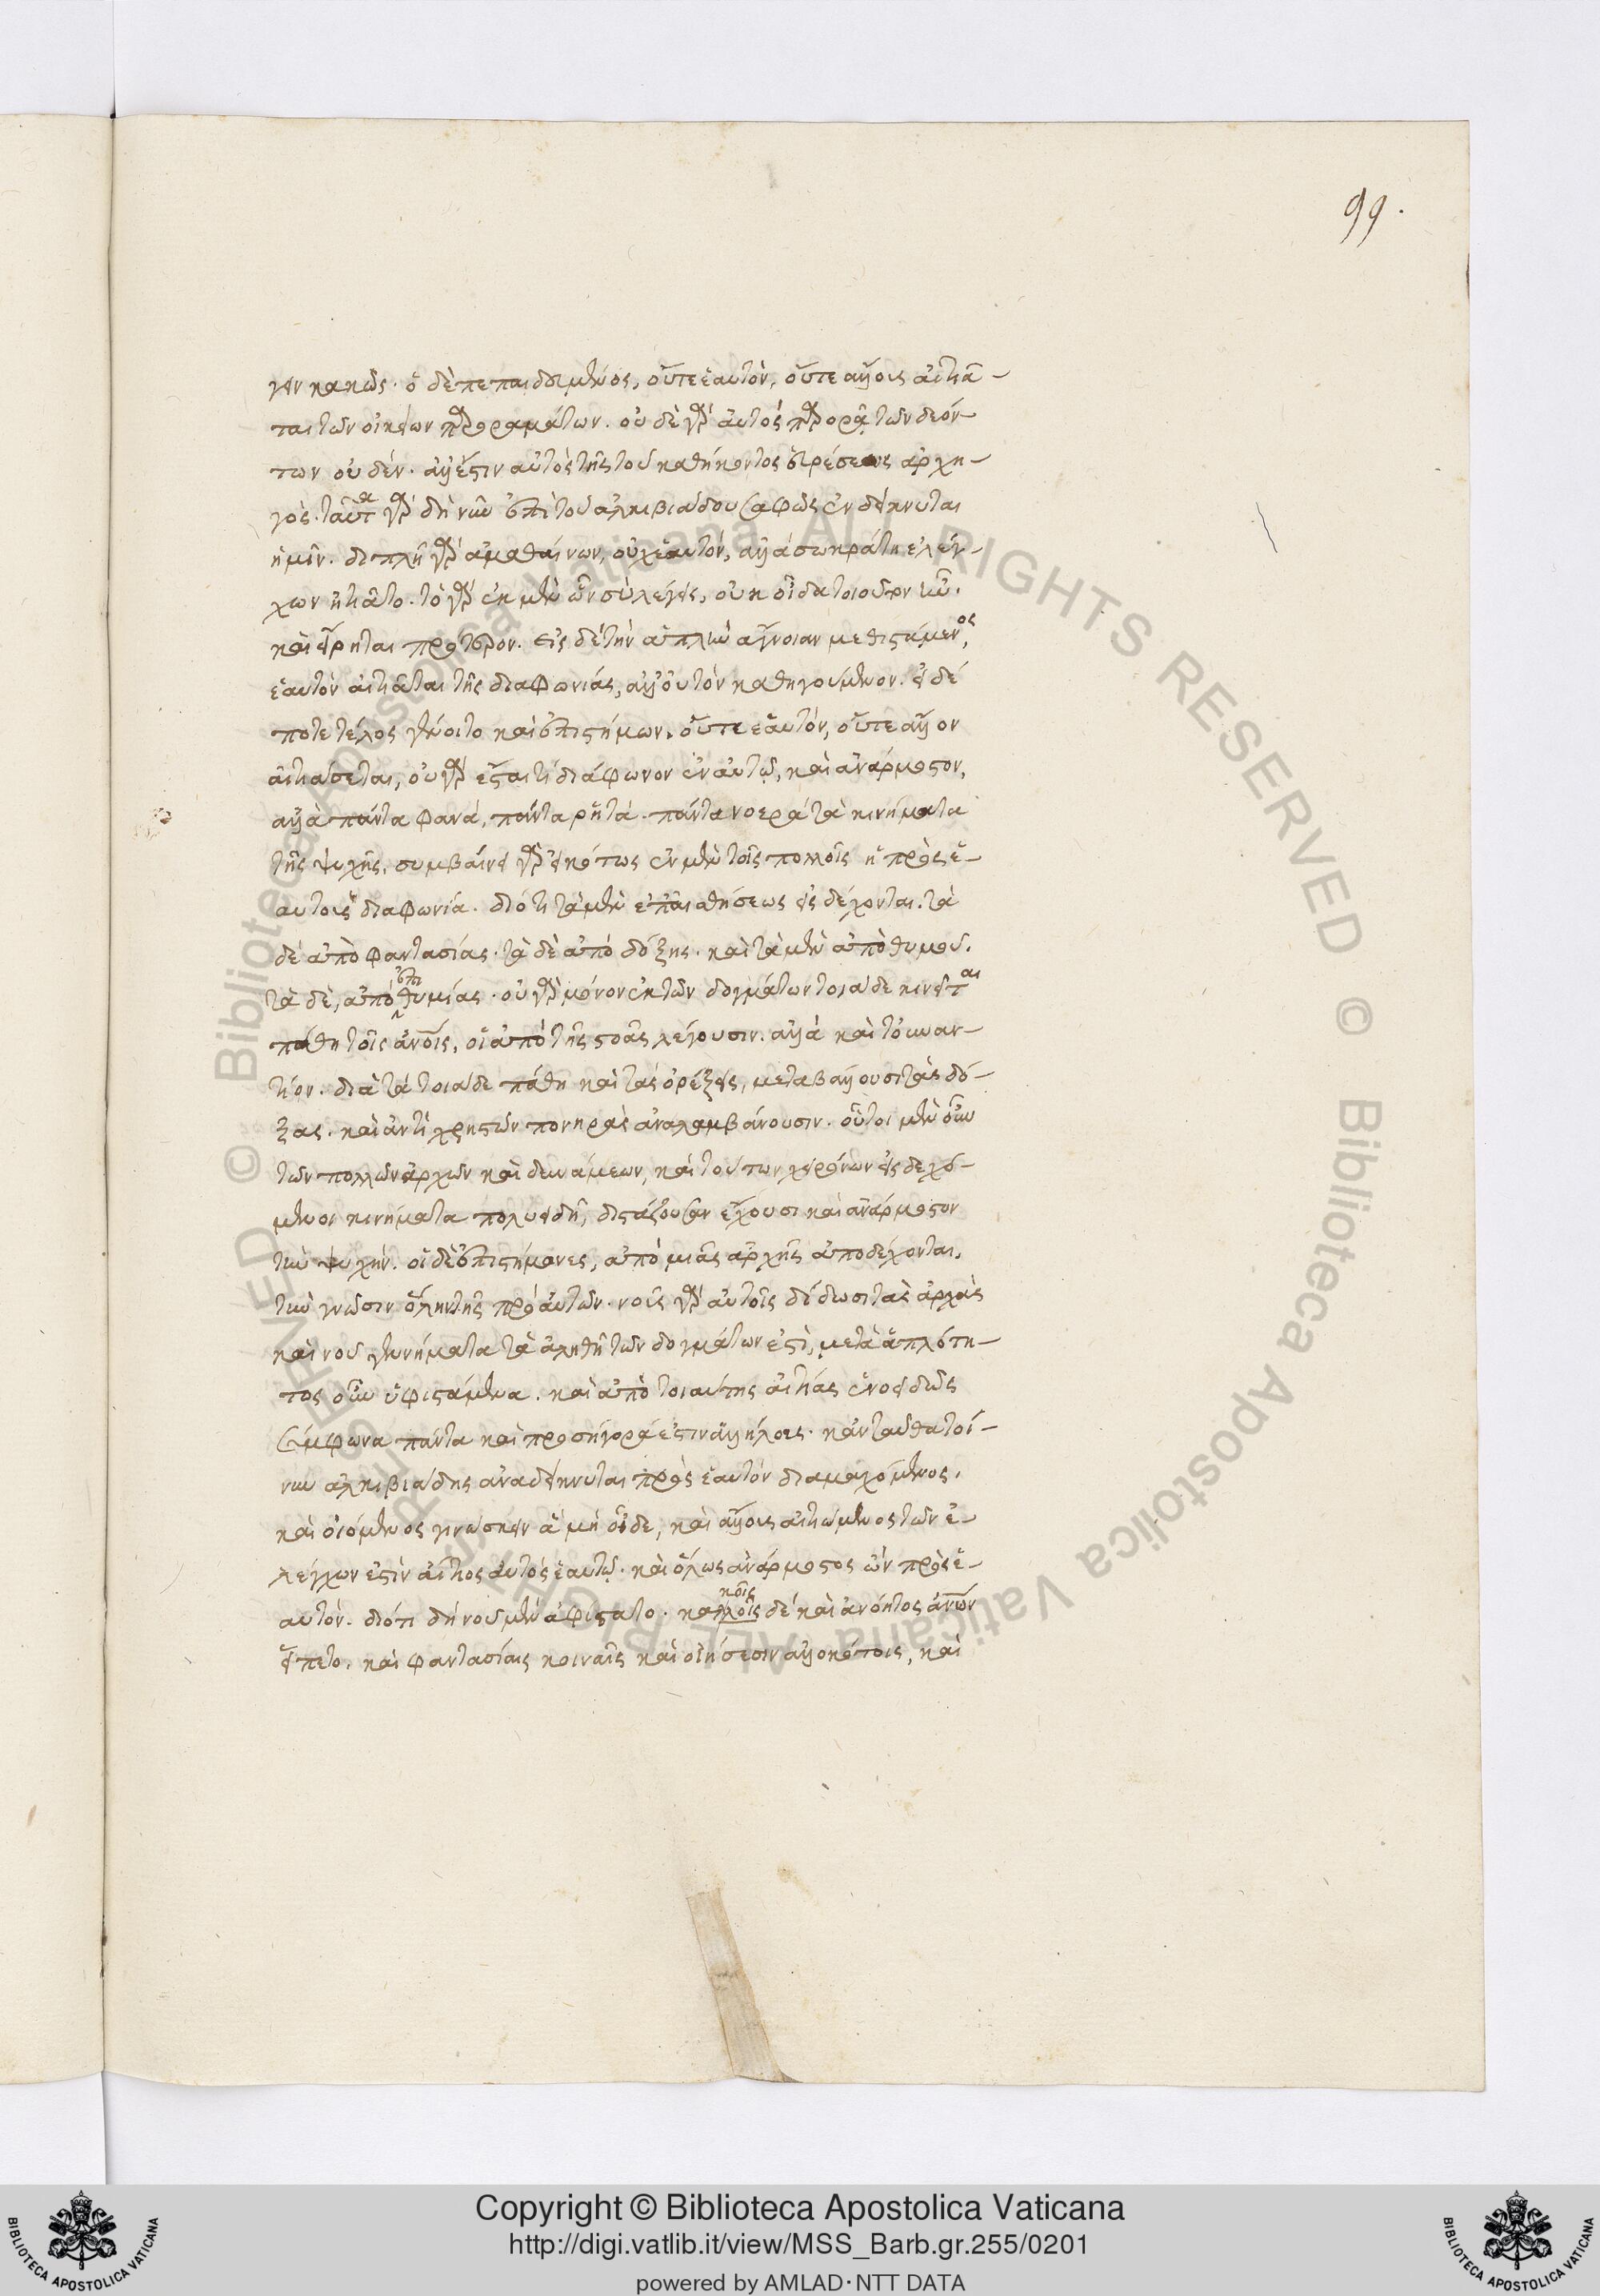 99.
γειν κακῶς. ὁ δὲ πεπαιδευμένος, οὔτε ἑαυτὸν, οὔτε ἄλλοις αἰτιᾶ-
ται τῶν οἰκείων παροραμάτων. οὐδὲ γὰρ αὐτὸς παρορᾷ τῶν δεόν
των οὐδέν. ἀλλ' ἔστιν αὐτὸς τῆς τοῦ καθήκοντος εὑρέσεως ἀρχη-
γὸς. ταῦτα γὰρ δὴ νῦν ἐπὶ τοῦ ἀλκιβιάδου σαφῶς ἐνδείκνυται
ἡμῖν. διπλῆ γὰρ ἀμαθαίνων, οὐχ ἑαυτόν, ἀλλὰ σωκράτη ἐλέγ-
χων ᾐτιᾶτο. τὸ γὰρ ἐκ μὲν ὧν σὺ λέγεις, οὐκ οἶδα τοιοῦτον ἦν.
καὶ εἴρηται πρότερον. εἰς δὲ τὴν ἁπλῆν ἄγνοιαν μεθιστάμενος,
ἑαυτὸν αἰτιᾶται τῆς διαφωνίας, ἀλλ' οὐ τὸν καθηγούμενον. εἰ δέ
ποτε τέλος γένοιτο καὶ ἐπιστήμων, οὔτε ἑαυτόν, οὔτε ἄλλον
αἰτιάσεται, οὐ γὰρ ἔσται τί διάφωνον ἐν αὐτῷ, καὶ ἀνάρμοστον,
ἀλλὰ πάντα φανά, πάντα ῥητά. πάντα νοερά τὰ κινήματα
τῆς ψυχῆς. συμβαίνει γὰρ εἰκότως ἐν μὲν τοῖς πολλοῖς ἡ πρὸς ἑ-
αυτοὺς διαφωνία. διότι τὰ μὲν ἐπ' αἰσθήσεως εἰσδέχονται. τὰ
δὲ ἀπὸ φαντασίας. τὰ δὲ ἀπὸ δόξης. καὶ τὰ μὲν ἀπὸ θυμοῦ.
τὰ δὲ, ἀπὸ ἐπιθυμίας. οὐ γὰρ μόνον ἐκ τῶν δογμάτων τοιάδε κινεῖται
πάθη τοῖς ἀνοῖς, οἱ ἀπὸ τῆς στοᾶς λέγουσιν. ἀλλὰ καὶ τὸ ἐναν-
τίον. διὰ τὰ τοιάδε πάθη καὶ τὰς ὀρέξεις, μεταβάλλουσι τὰς δό-
ξας. καὶ ἀντὶ χρηστῶν πονηρὰς ἀναλαμβάνουσιν. οὗτοι μὲν οὖν
τῶν πολλῶν ἀρχῶν καὶ δυνάμεων, καὶ τούτων χειρόνων εἰσδεχό-
μενοι κινήματα πολυειδῆ, διστάζουσαν ἔχουσι καὶ ἀνάρμοστον
τὴν ψυχήν. οἱ δὲ ἐπιστήμονες, ἀπὸ μιᾶς ἀρχῆς ἀποδέχονται,
τὴν γνῶσιν ὅλην τῆς πρὸ αὐτῶν. νοῦς γὰρ αὐτοῖς δίδωσι τὰς ἀρχὰς
καὶ νοῦ γεννήματα τὰ ἀληθῆ τῶν δογμάτων ἐστὶ, μετὰ ἁπλότη-
τος οὖν ὑφιστάμενα. καὶ ἀπὸ τοιαύτης αἰτίας ἑνοειδῶς
σύμφωνα πάντα καὶ προσήγορά ἐστιν ἀλλήλοις. κἀνταῦθα τοί-
νυν ἀλκιβιάδης ἀναδείκνυται πρὸς ἑαυτόν διαμαχόμενος,
καὶ οἰόμενος γινώσκειν ἃ μὴ οἶδε, καὶ ἄλλοις αἰτιώμενος τῶν ἐ-
λέγχων ἐστὶν αἴτιος αὐτὸς ἑαυτῷ. καὶ ὅλως ἀνάρμοστος ὢν πρὸς ἑ-
αυτὸν. διότι δὴ νοῦ μὲν ἀφίστατο. δὲ καὶ ἀνόητος ἀνων
εἵπετο. καὶ φαντασίαις κοιναῖς καὶ οἰήσεσιν ἀλλοκότοις, καὶ
Copyright © Biblioteca Apostolica Vaticana
http://digi.vatlib.it/view/MSS_Barb.gr.255/0201
powered by AMLAD·NTT DATA